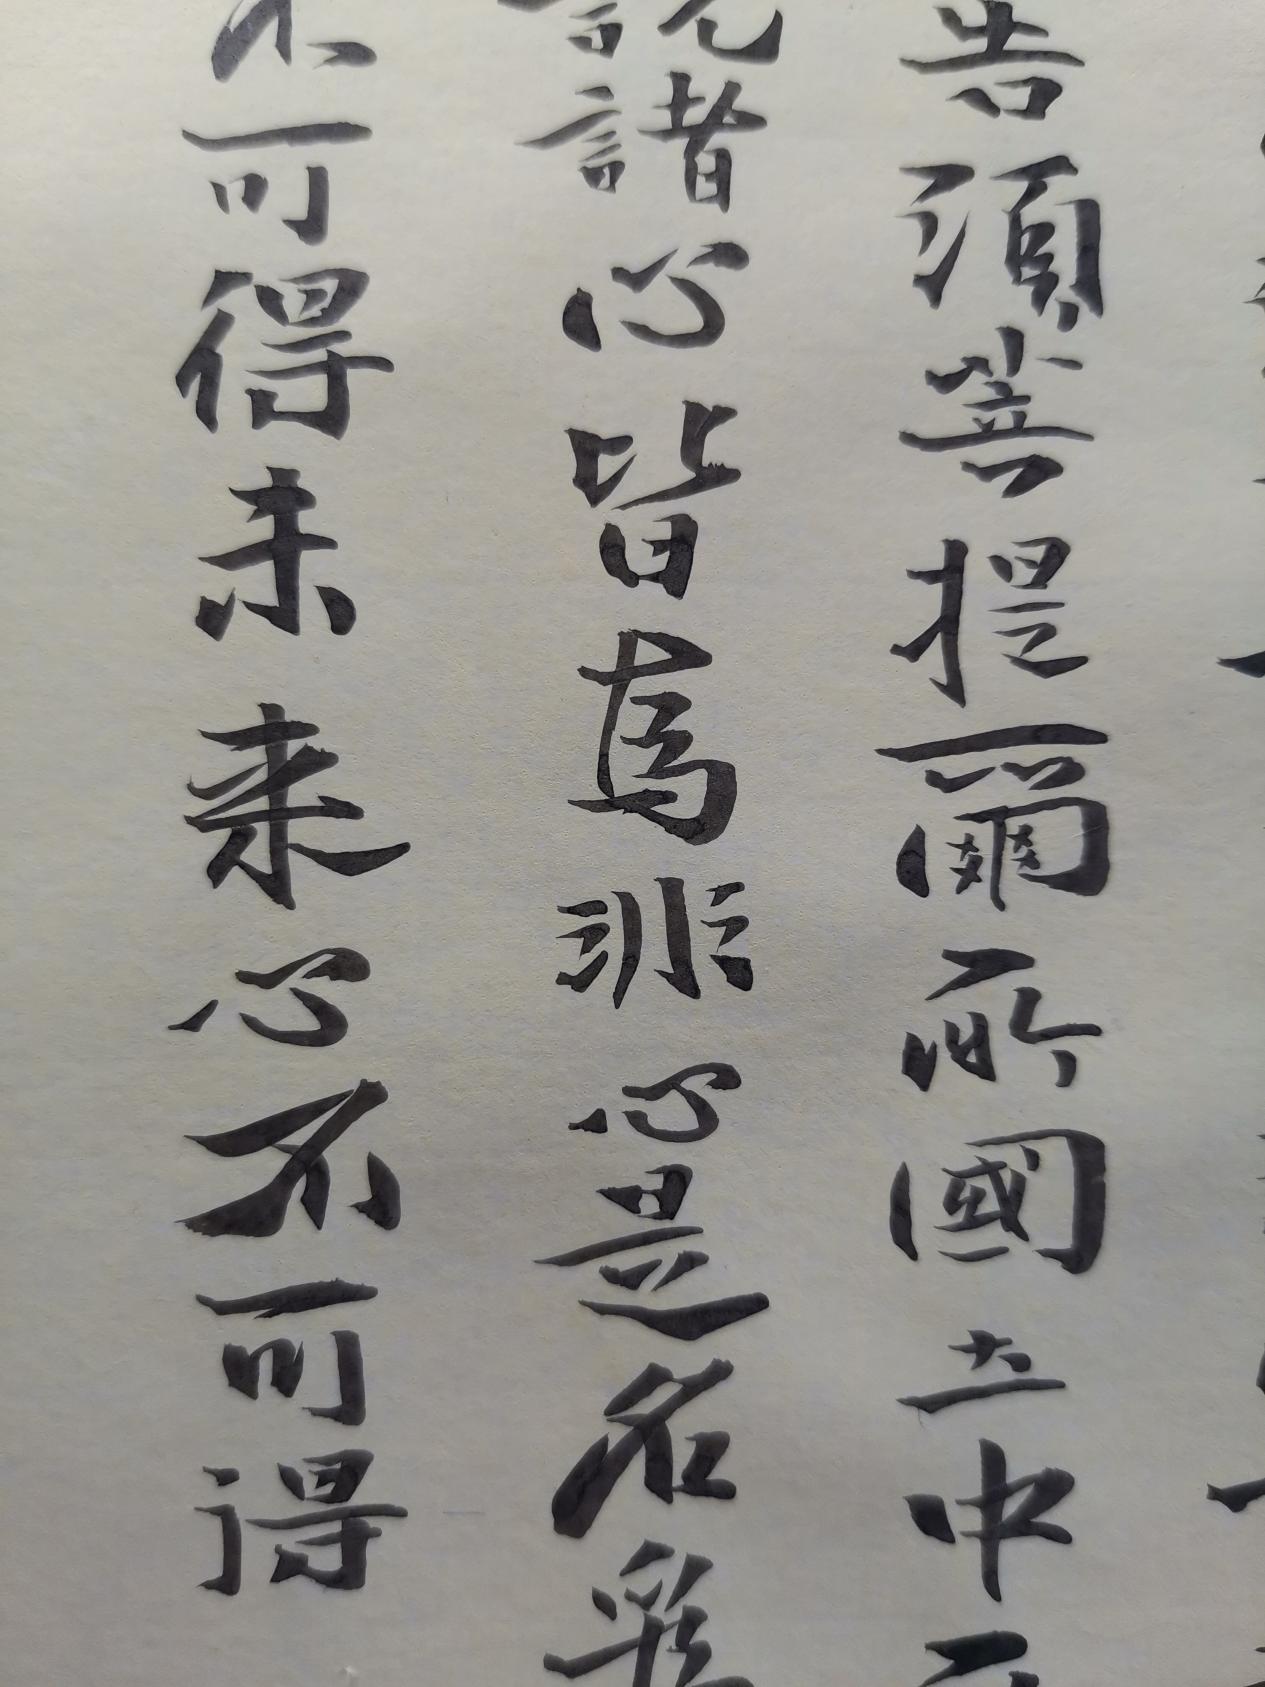 告須菩提爾所國土中
說諸心皆為非心是名
不可得未来心不可得